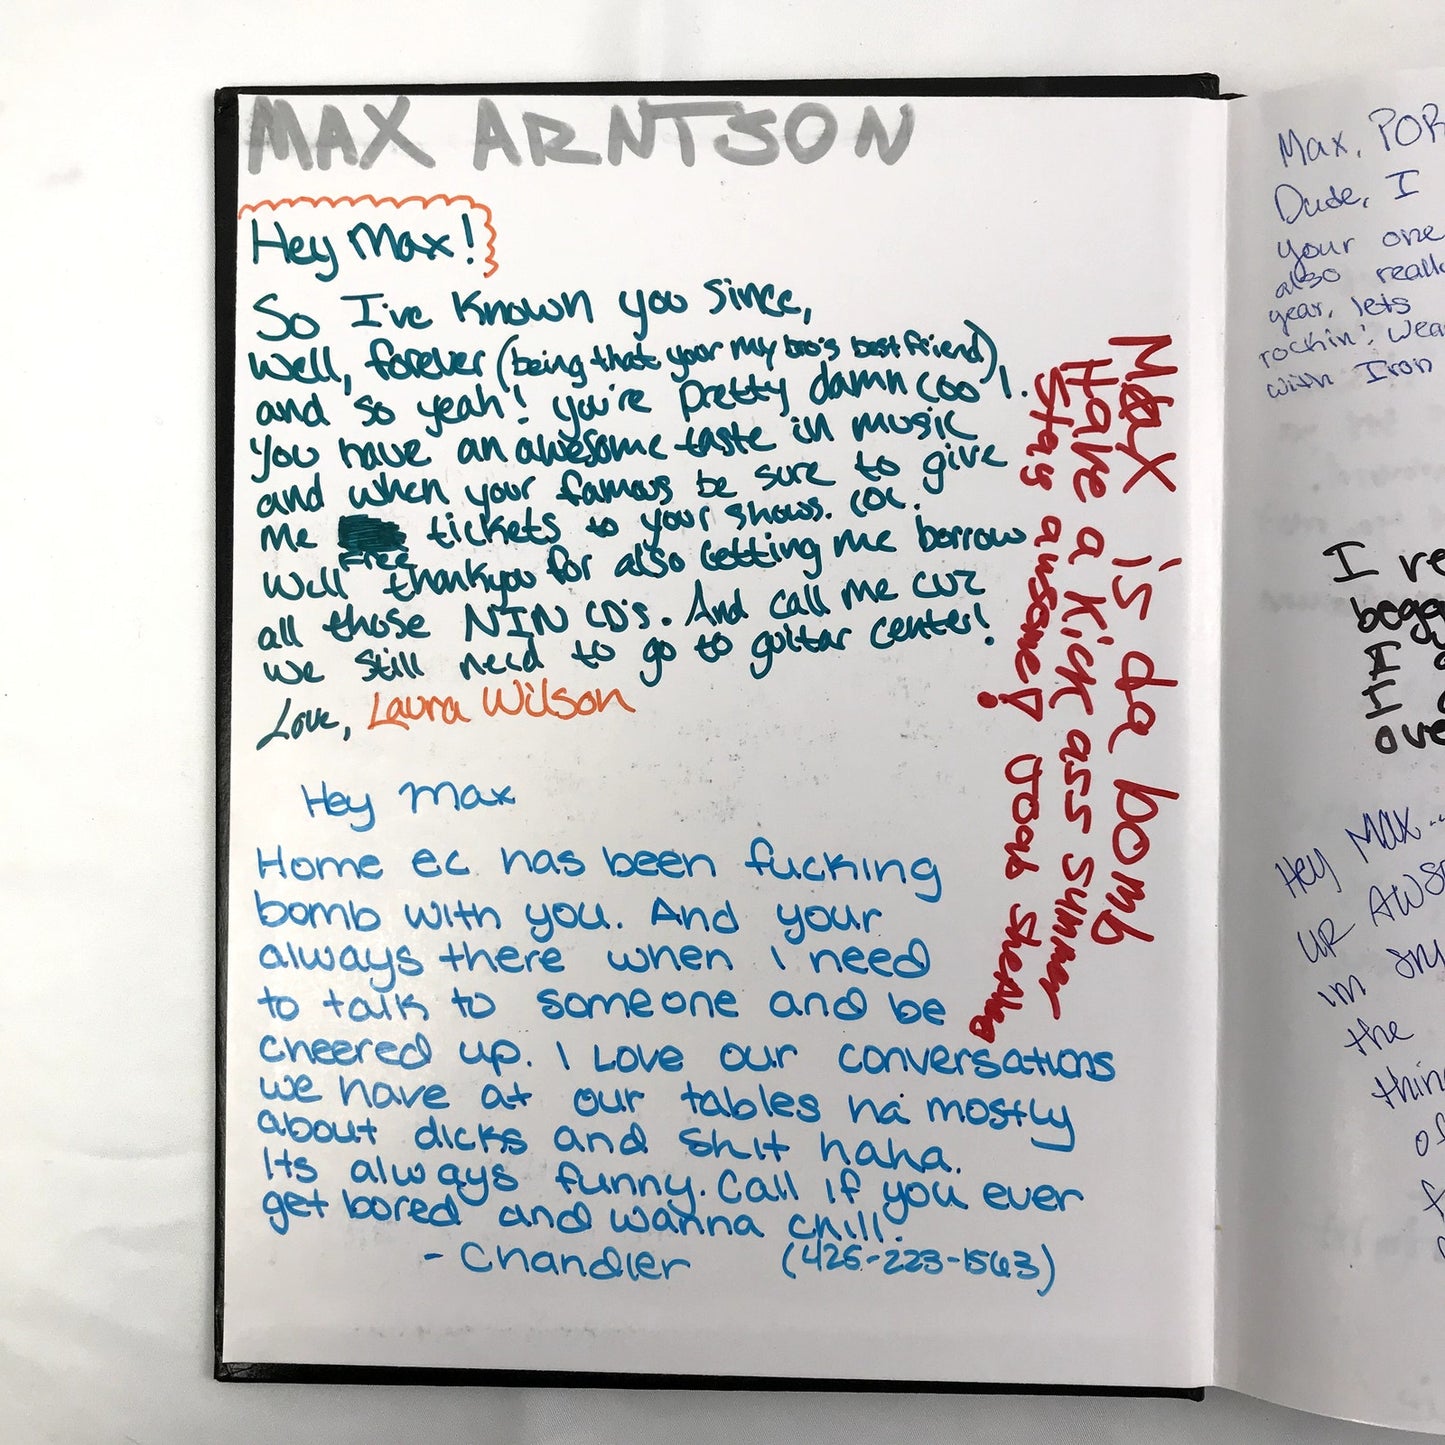 MAX ARNTSON
Hey Max!
So I've known you since,
well, forever (being that your my bro's best friend)
and so yeah! you're pretty damn cool.
You have an awesome taste in music
and when your famous be sure to give
me free tickets to your shows. LOL.
Well thankyou for also letting me borrow
all those NIN CD's. And call me cuz
we still need to go to guitar center!
Love, Laura Wilson
Max is da bomb
Have a kick ass summer
Stay awsome!
Hey Max
Home ec has been fucking
bomb with you. And your
always there when I need
to talk to someone and be
cheered up. I Love our conversations
we have at our tables ha mostly
about dicks and shit haha.
Its always funny. Call if you ever
get bored and wanna chill.
- Chandler (425-223-1563)
Max,
Dude, I
your one
also
year, lets
rockin'.
with Iron
I
I
I
Hey Max...
UR
im
the
of